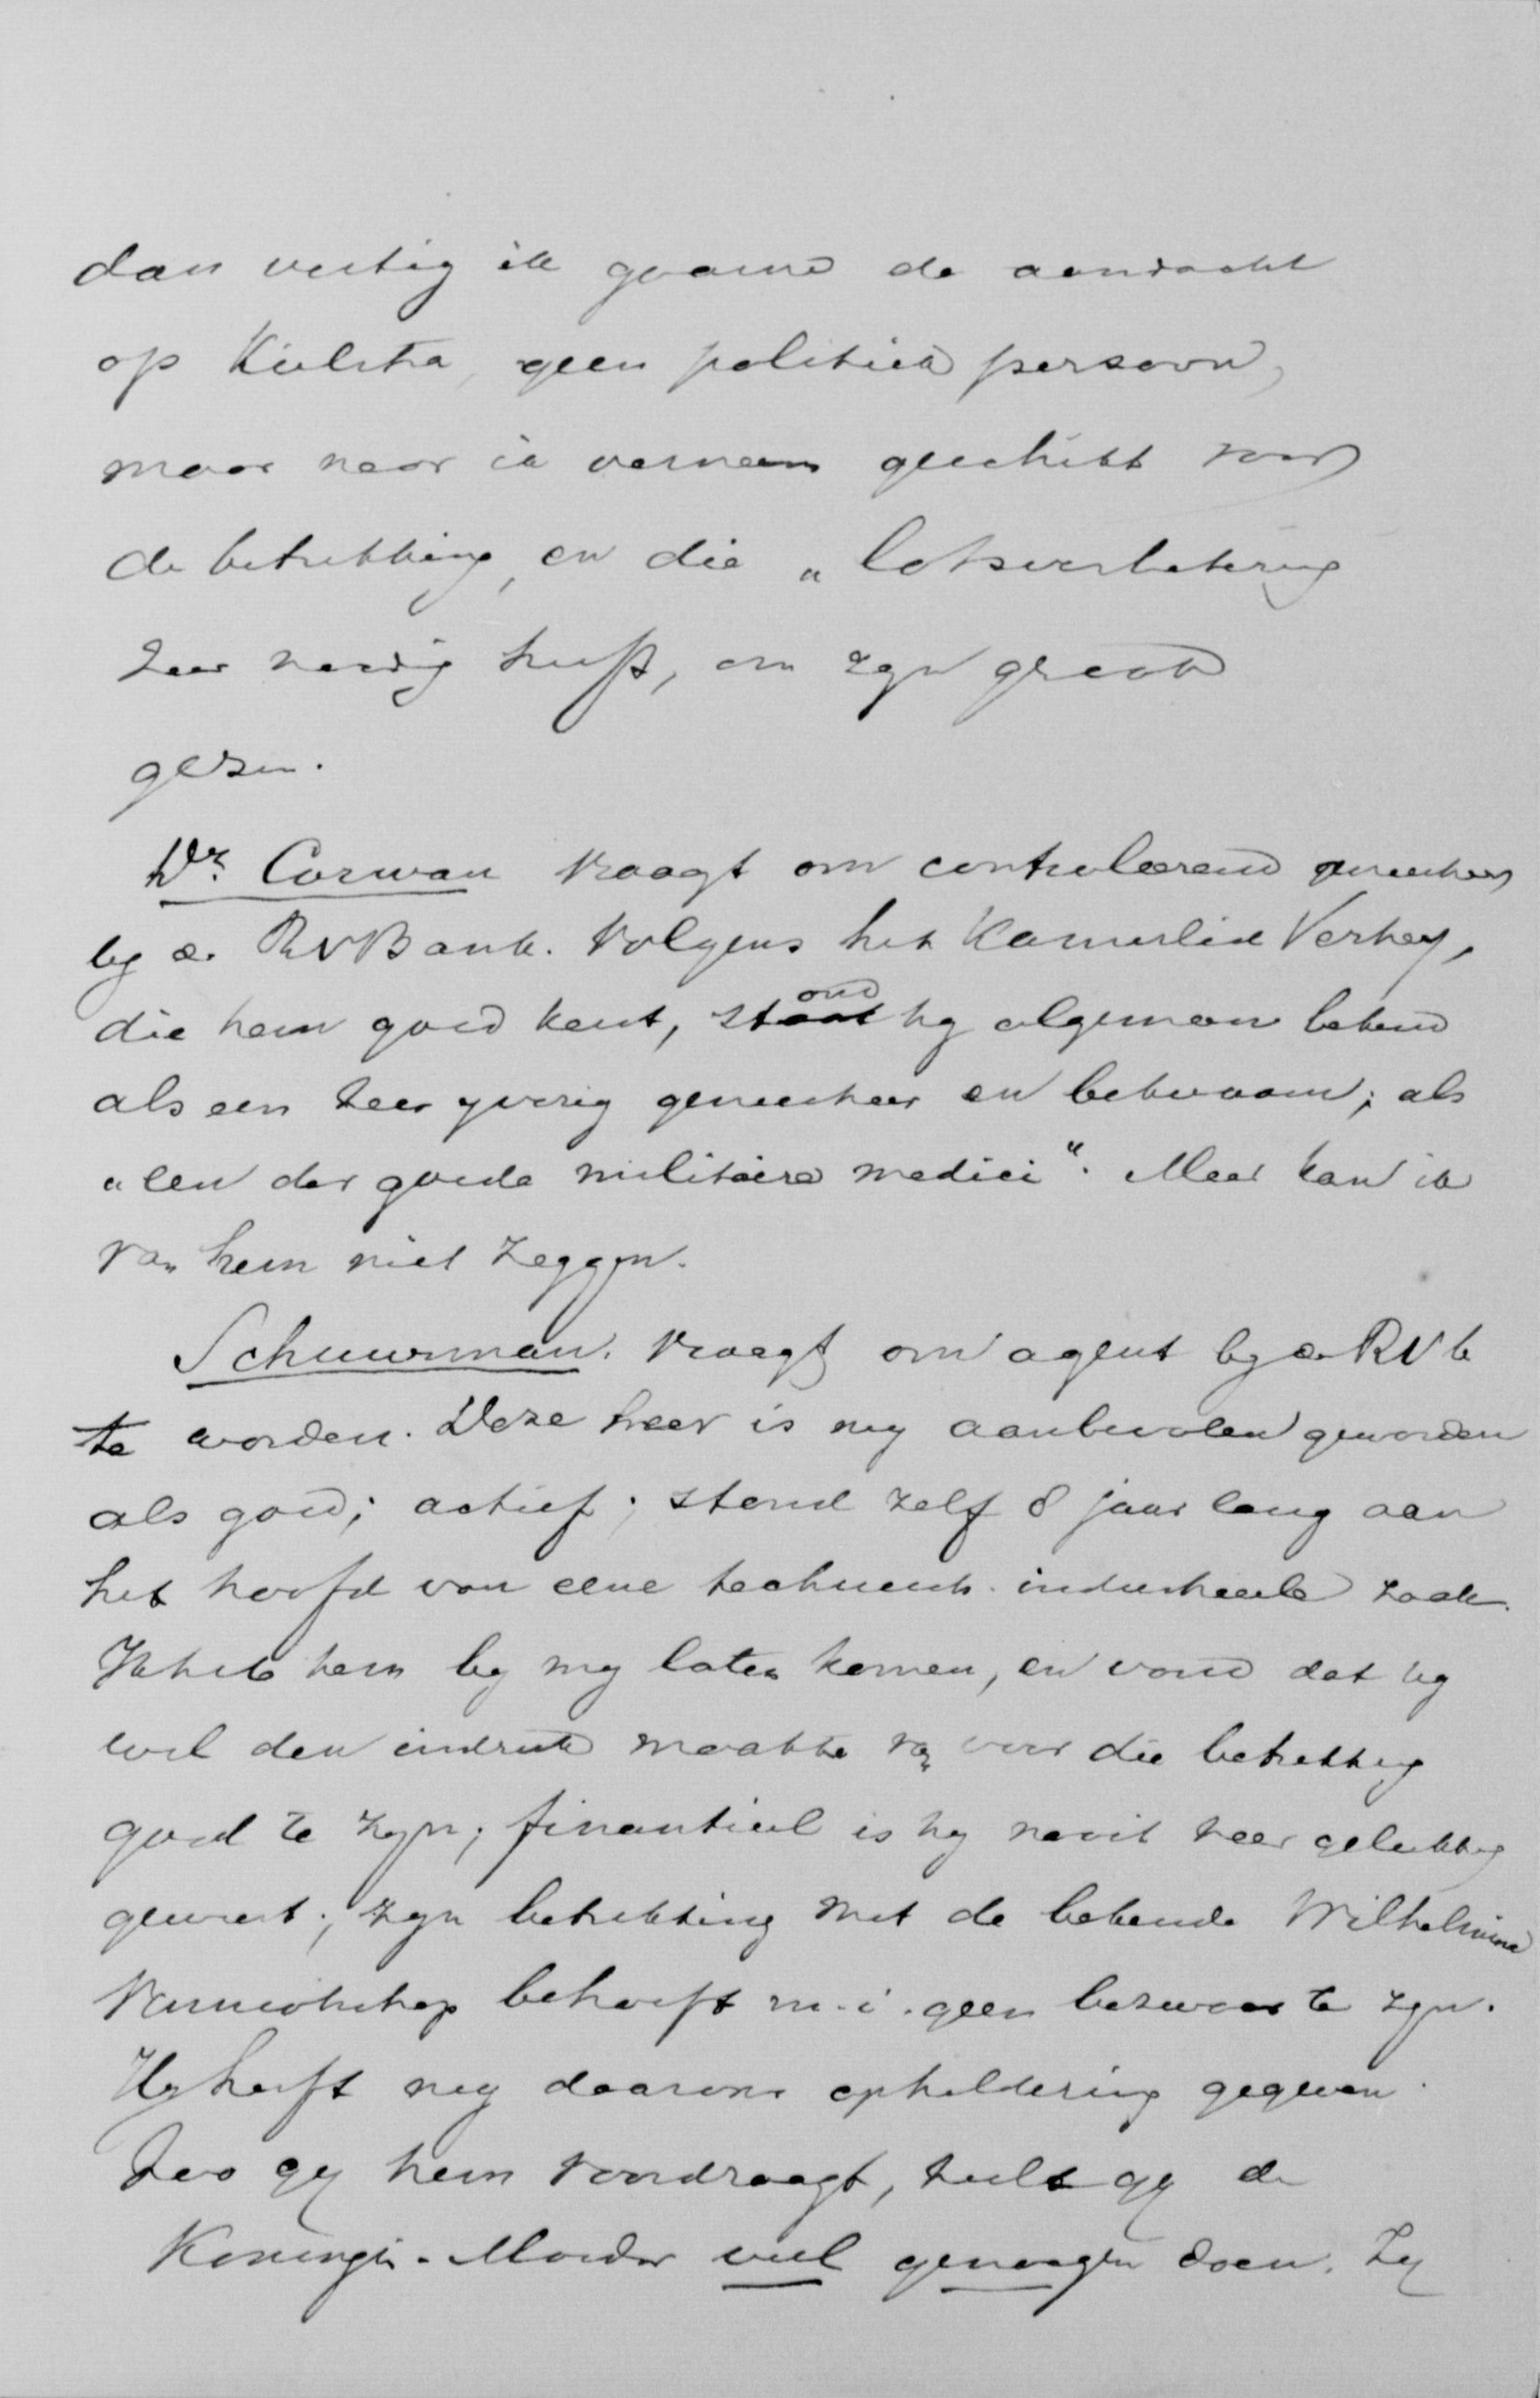 dan vestig ik gaarne de aandacht
op Kielstra, geen politiek persoon,
maar naar ik verneem geschikt voor
de betrekking, en die „lotsverbetering
zeer noodig heeft, om zijn groot
gezin.
Dr. Corwan vraagt om controleerend geneesheer
bij de RVBank. Volgens het Kamerlid Verhey,
die hem goed kent, staat ond hij algemeen bekend
als een zeer ijverig geneesheer en bekwaam; als
„een der goede militaire medici“. Meer kan ik
van hem niet zeggen.
Schuurman. vraagt om agent bij de RVb
te worden. Deze heer is mij aanbevolen geworden
als goed; actief; stond zelf 8 jaar lang aan
het hoofd van eene technisch. industrieele zaak.
Ik heb hem bij mij laten komen, en vond dat hij
wel den indruk maakte van voor die betrekking
goed te zijn; finantieel is hij nooit zeer gelukkig
geweest; zijn betrekking met de bekende Wilhelmina
Vennootschap behoeft m.i. geen bezwaar te zijn.
Hij heeft mij daarom opheldering gegeven.
Zoo gij hem voordraagt, zult gij de
Koningin-Moeder veel genoegen doen. Zij